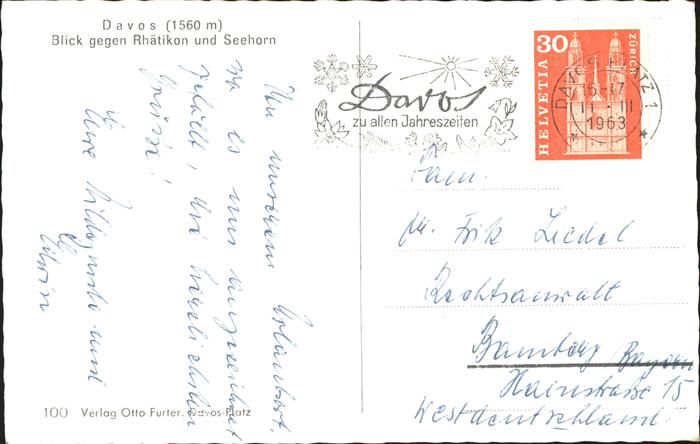 Davos (1560 m)
Blick gegen Rhätikon und Seehorn
Davos
zu allen Jahreszeiten
HELVETIA 30 ZÜRICH
DAVOS PLATZ 1
16-17
11.-III
1963
Von unserem Urlaubsort,
wo es uns ausgezeichnet
gefällt, die herzlichsten
Grüsse!
Eure Hildegunde und
Fam.
Dr. Fritz Liedel
Rechtsanwalt
Bamberg Bayern
Hainstraße 15
Westdeutschland
100 Verlag Otto Furter, Davos-Platz